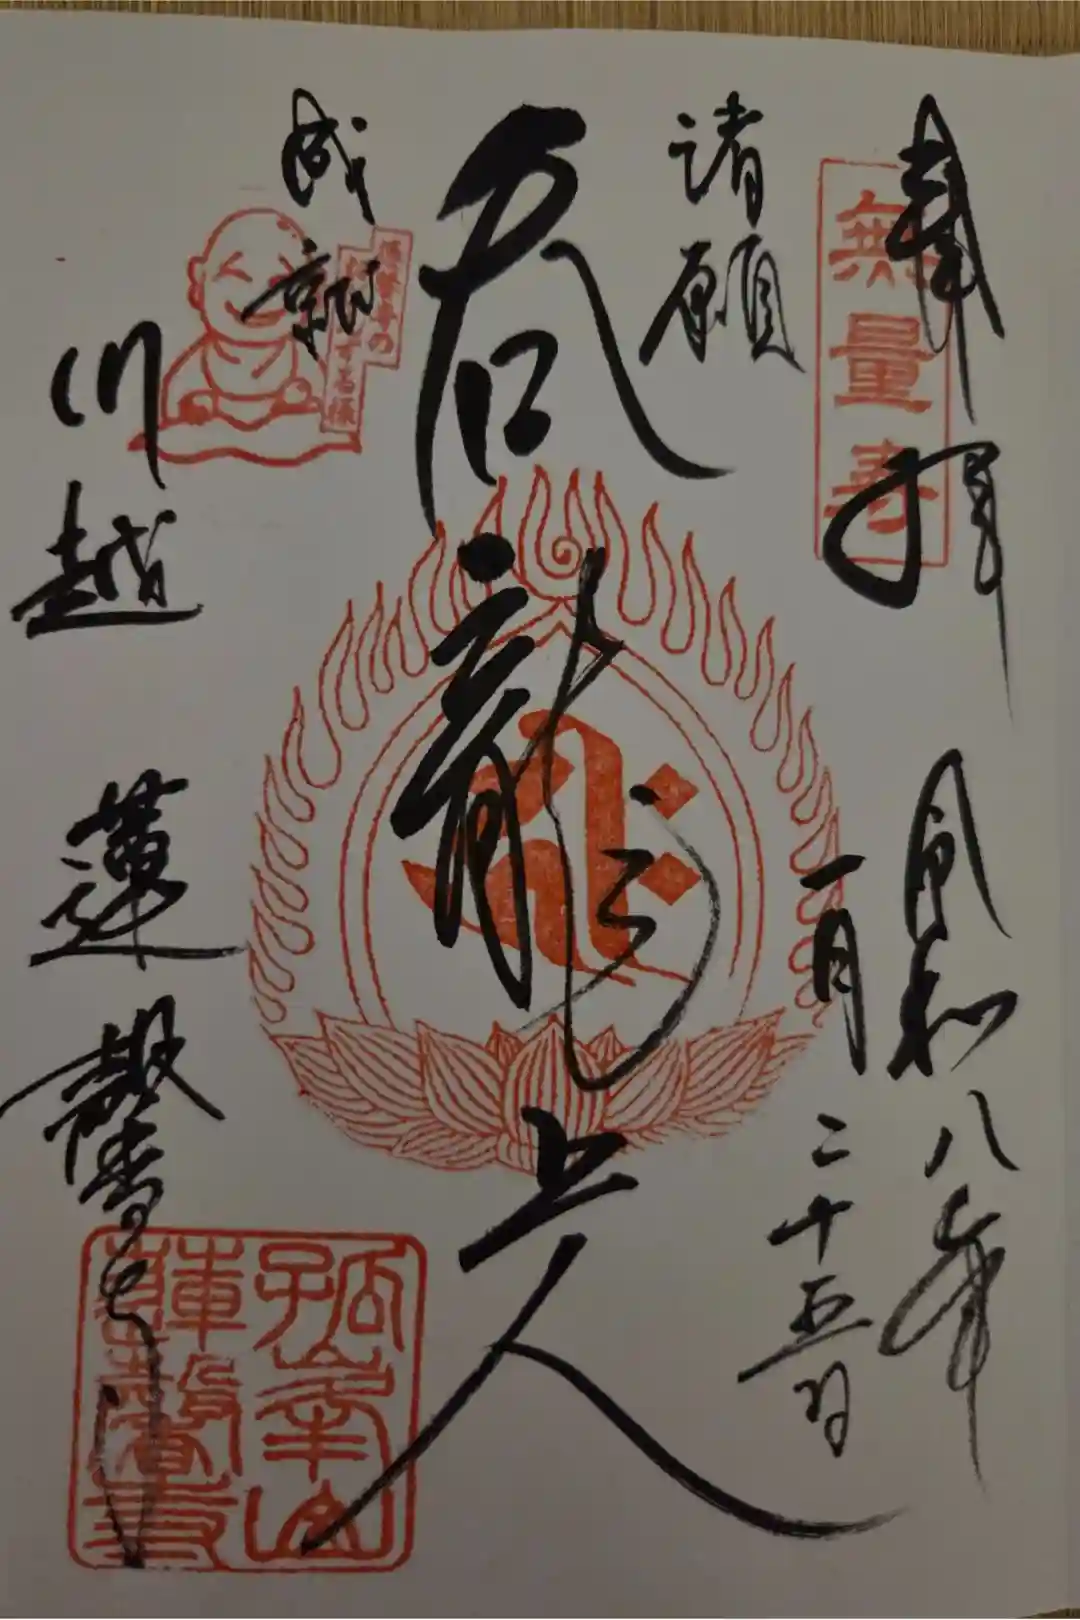 奉拝
無量寿
令和八年
一月二十五日
諸願
呑龍上人
成就
蓮馨寺の
おびんずる様
川越 蓮馨寺
孤峯山
蓮馨寺